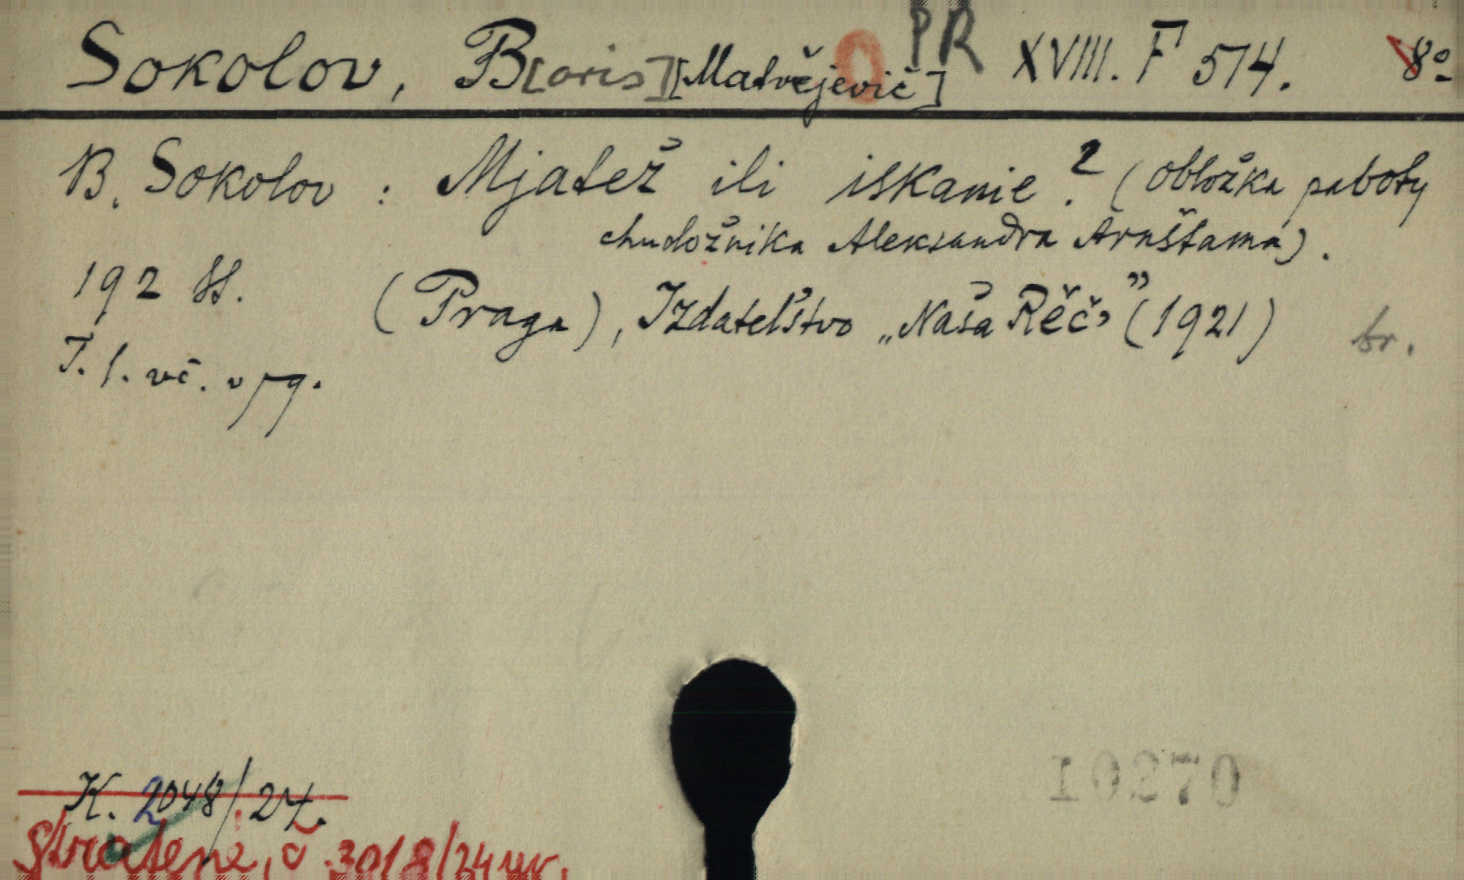 Sokolov, B[oris] [Matvějevič] PR XVIII. F 514. 8º
B. Sokolov : Mjatež ili iskanie? (obložka raboty
chudožnika Aleksandra Arnštama).
192 ss. (Praga), Izdatelstvo „Naša Rěč" (1921) br.
T. l. vč. v
10270
K. 2048/24.
Stratené, č. 3018/24